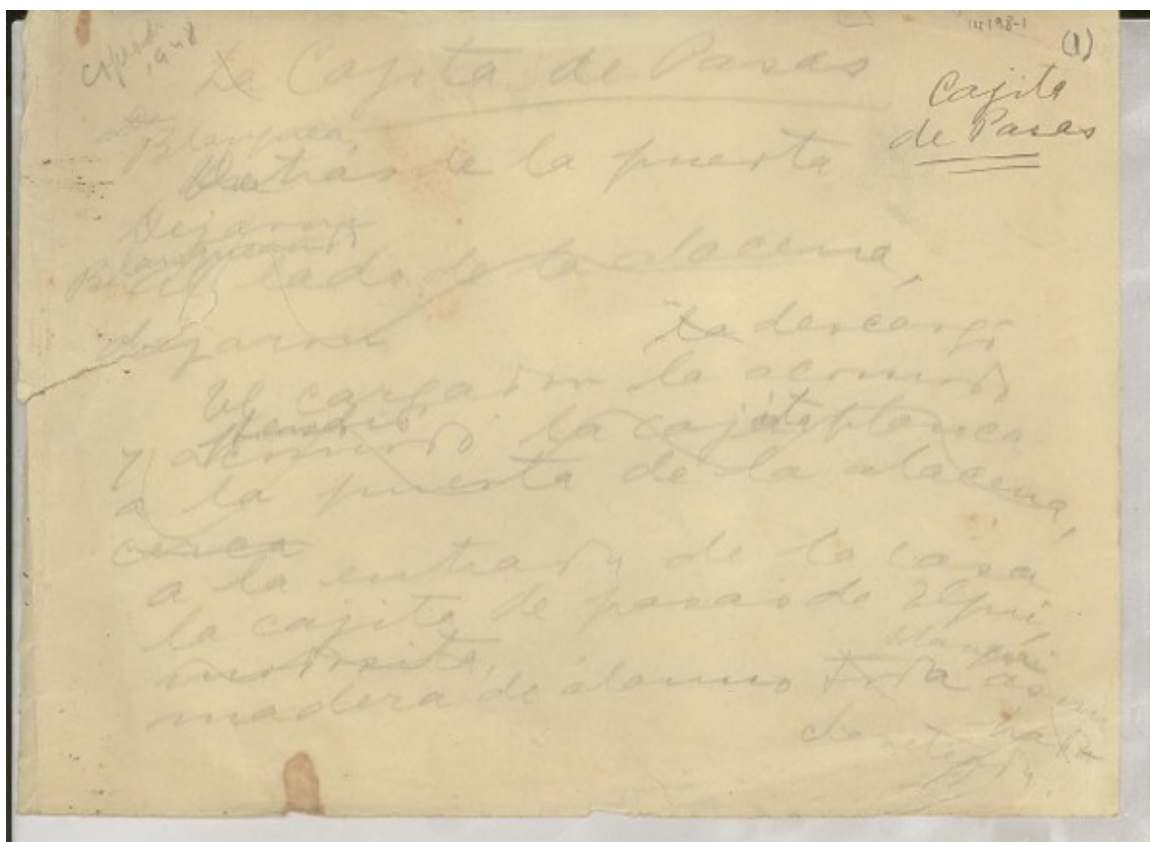 14198-1
(1)
Cajita
de Pasas
La Cajita de Pasas
Blanquea,
Detrás de la puerta
Dejaron
Blanqueando
Al lado de la alacena,
dejaron
La descargó
El cargador la acomodó
y acomodó la cajita blanca
a la puerta de la alacena,
cerca
a la entrada de la casa
la cajita de pasas de Elqui
madera de álamo